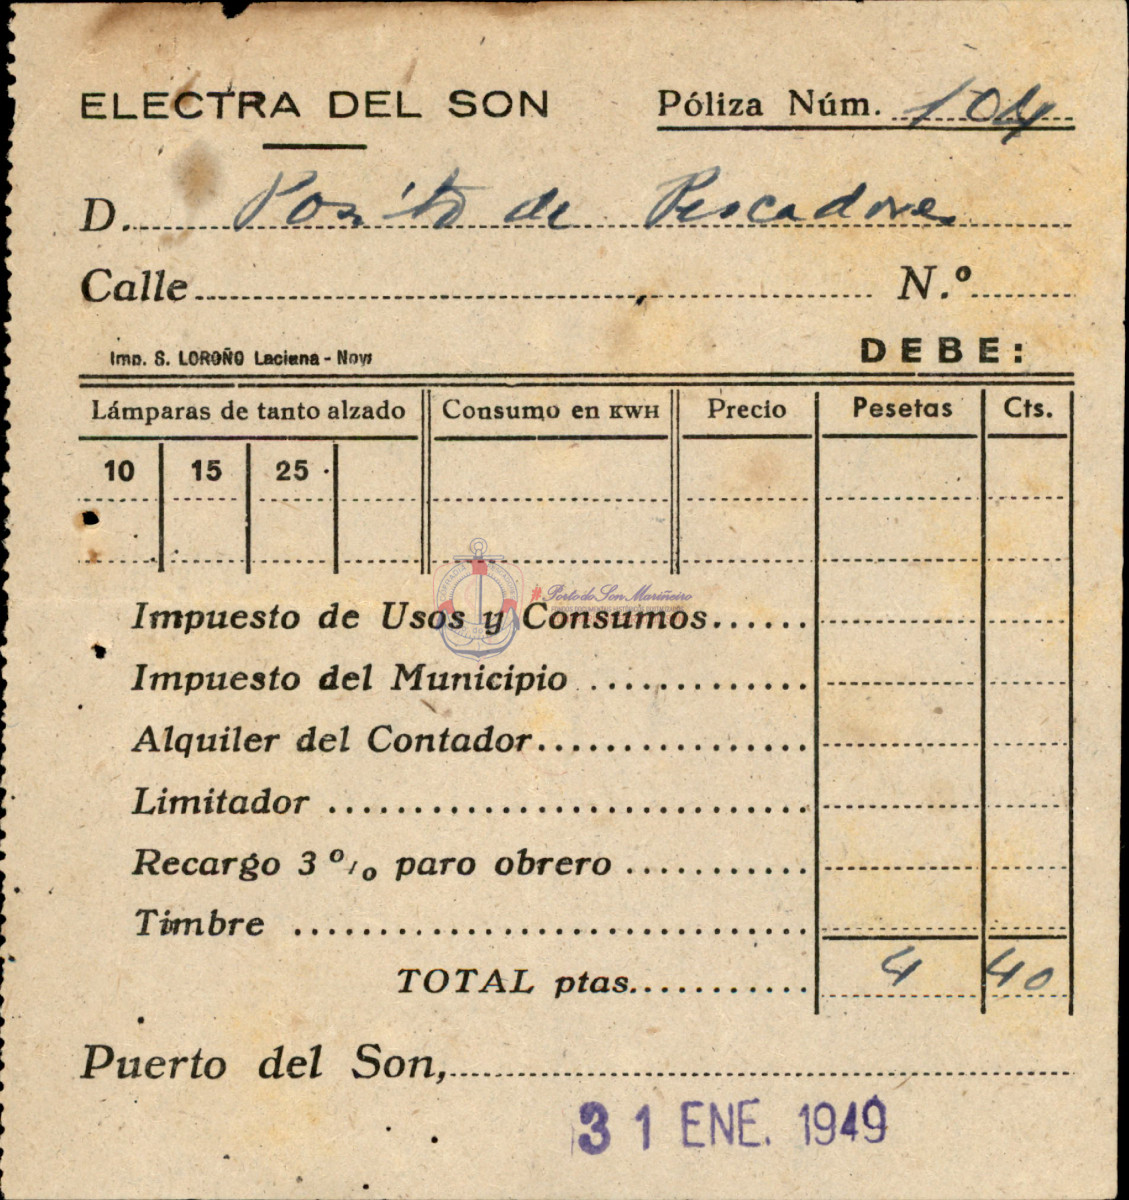 ELECTRA DEL SON Póliza Núm. 104
D. Posito de Pescadores
Calle N.º
Imp. S. LOROÑO Laciana - Noya DEBE:
Lámparas de tanto alzado Consumo en KWH Precio Pesetas Cts.
10 15 25
#PortodoSonMariñeiro
Impuesto de Usos y Consumos
Impuesto del Municipio
Alquiler del Contador
Limitador
Recargo 3 % paro obrero
Timbre
TOTAL ptas. 4 40
Puerto del Son,
31 ENE. 1949